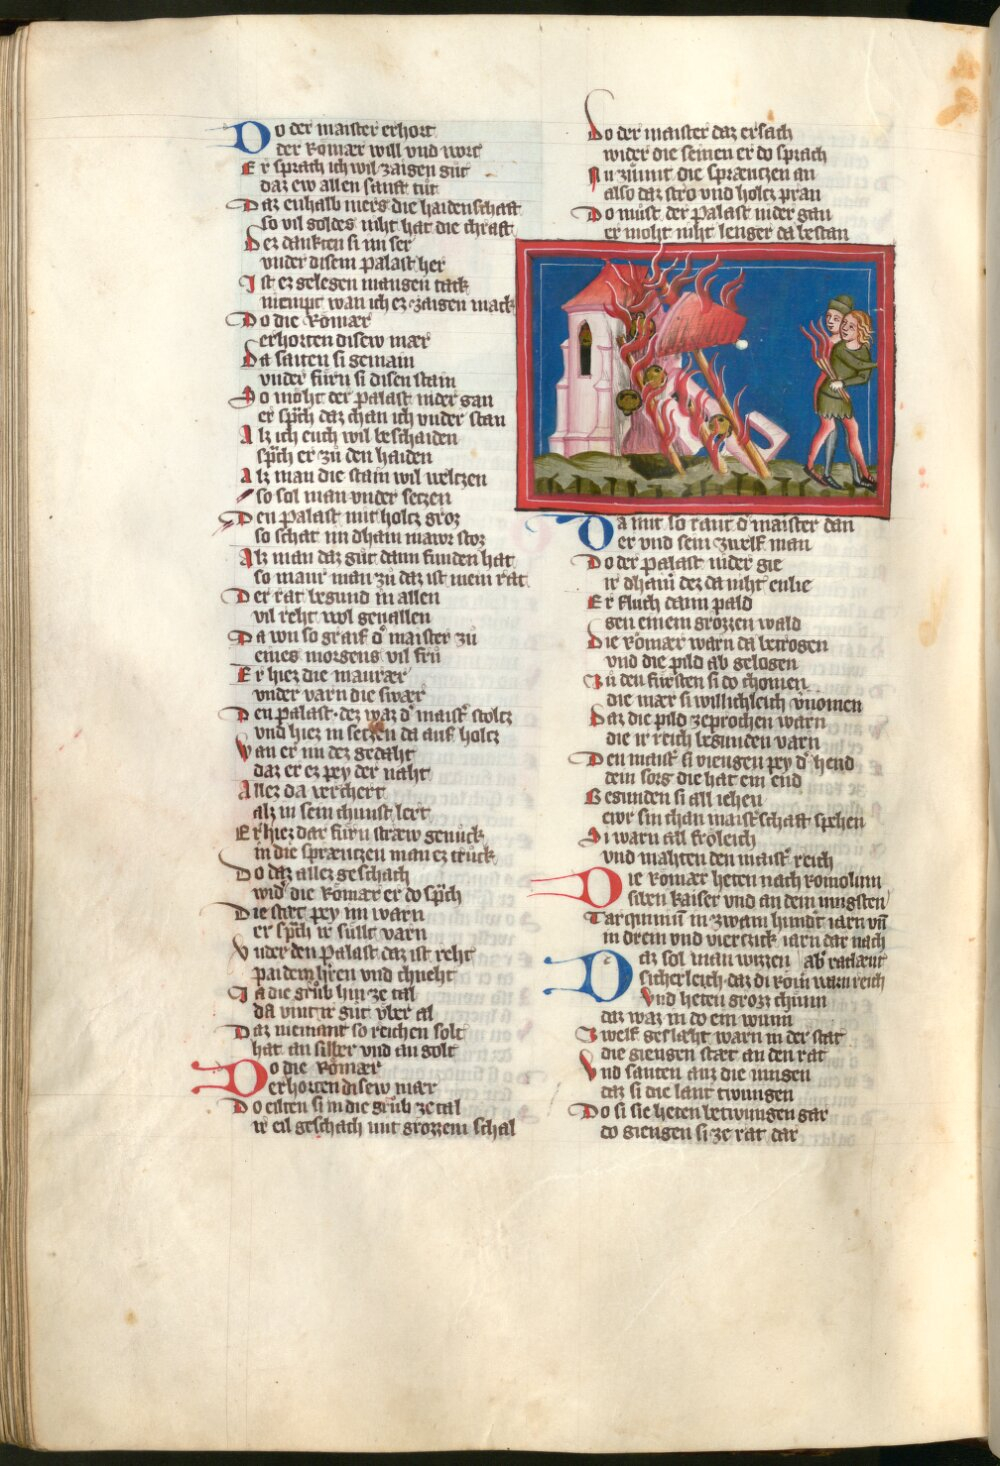 Do der maister erhort
der Romær will vnd wort
Er sprach ich wil zaigen gůt
daz ew allen sanft tůt
Daz enhalb mers die haidenschaft
so vil goldes niht hat die chraft
Dez dankten si im ser
vnder disem palast her
Ist ez gelegen mangen tack
niempt wan ich ez zaigen mack
Do die Romær
erhorten disew mær
Da sauten si gemain
vnder fůrn si disen stain
So moht der palast nider gan
er sp̄ch daz chan ich vnder stan
Alz ich euch wil beschaiden
sp̄ch er zů den haiden
Alz man die stain wil weltzen
so sol man vnder setzen
Den palast mit holtz groz
so schat im dhain mawr stoz
Alz man daz gůt dann funden hat
so maur man zů daz ist mein rat
Der rat begund in allen
vil reht wol geuallen
Da wu so graif d' maister zů
eines morgens vil frů
Er hiez die maurær
vnder varn die swær
Den palast. dez waz d' maist' stoltz
vnd hiez in setzen da auf holtz
Wan er im dez gedaht
daz er ez pey der naht
Allez da verchert
alz in sein chunst lert
Er hiez dar fůrn straw genůck
in die spræutzen man ez trůck
Do daz allez geschach
wid' die Romær er do sp̄ch
Die stæt pey im warn
er sp̄ch ir sullt varn
Vnder den palast daz ist reht
paidem h'ren vnd chneht
In die grůb hin ze tal
da vint ir gůt vber al
Daz niemant so reichen solt
hat an silber vnd an golt
Do die Romær
erhorten disew mær
Do eilten si in die grůb ze tal
ir eil geschach mit grozzem schal
Do der maister daz ersach
wider die seinen er do sprach
Nu zůnnt die spræutzen an
also daz stro vnd holtz pran
Do můst der palast nider gan
er moht niht lenger da bestan
Da mit so rant d' maister dan
er vnd sein zwelf man
Do der palast nider gie
ir dhain dez da niht enlie
Er fluch dann pald
gen einem grozzen wald
Die Romær warn da betrogen
vnd die pild ab gelogen
Zů den fursten si do chomen
die mær si willichleich v'nomen
Daz die pild zeprochen warn
die ir reich begunden varn
Den maist' si viengen pey d' hend
dem sorg die hat ein end
Begunden si all iehen
ewr sin chan maist'schaft spehen
Si warn all froleich
vnd mahten den maist' reich
Die Romær heten nach Romolum
siben kaiser vnd an dem iungsten
Tarquinium in zwain hund't iarn vn̄
in drem vnd viertzick iarn dar nach
Daz sol man wizzen
sicherleich. daz di Rom' warn reich
Vnd heten groz chunn
daz waz in do ein wunn
Zwelf geslæht warn in der stat
die giengen stæt an den rat
Vnd santen auz die iungen
daz si die lant twungen
Do si sie heten betwungen gar
do giengen si ze rat dar